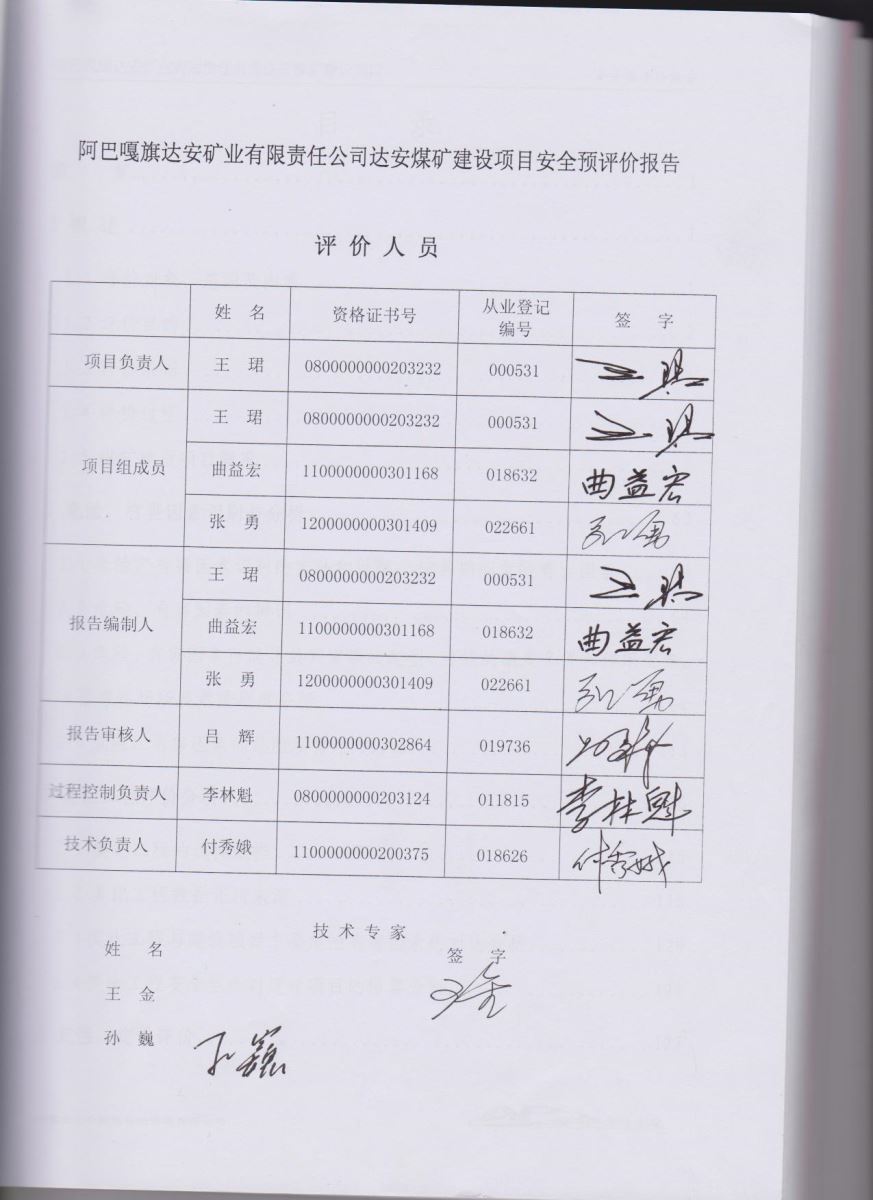 阿巴嘎旗达安矿业有限责任公司达安煤矿建设项目安全预评价报告
评价人员
姓 名 资格证书号 从业登记编号 签 字
项目负责人 王 珺 0800000000203232 000531 王珺
项目组成员 王 珺 0800000000203232 000531 王珺
曲益宏 1100000000301168 018632 曲益宏
张 勇 1200000000301409 022661 张勇
报告编制人 王 珺 0800000000203232 000531 王珺
曲益宏 1100000000301168 018632 曲益宏
张 勇 1200000000301409 022661 张勇
报告审核人 吕 辉 1100000000302864 019736 吕辉
过程控制负责人 李林魁 0800000000203124 011815 李林魁
技术负责人 付秀娥 1100000000200375 018626 付秀娥
技术专家
姓 名 签 字
王 金 王金
孙 巍 孙巍